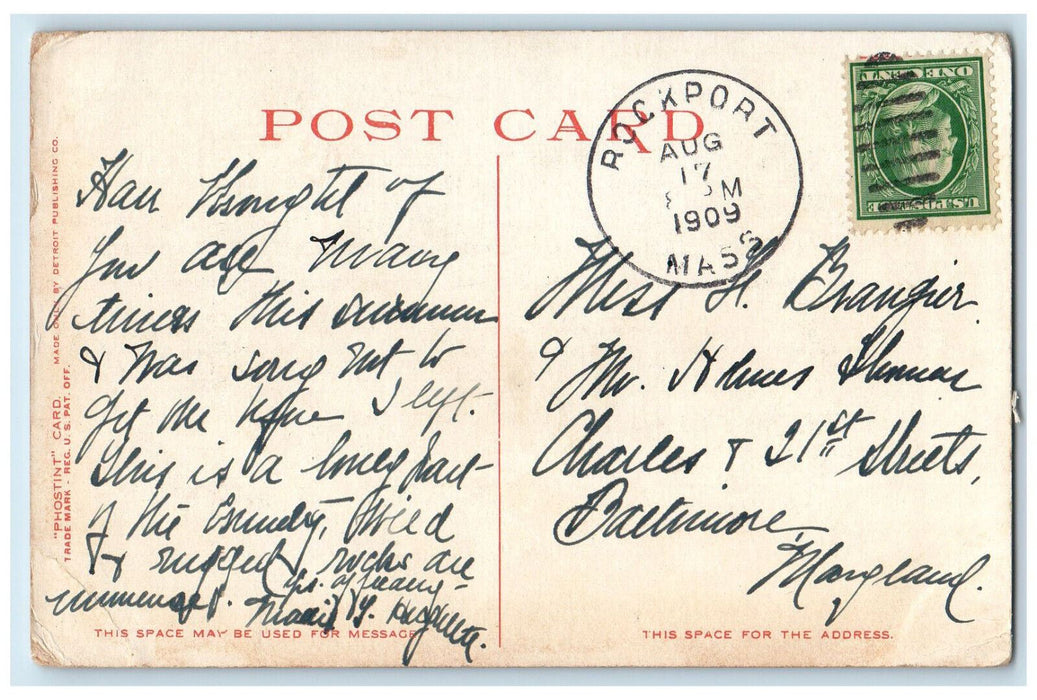 POST CARD
ROCKPORT
AUG
17
M
1909
MASS
ONE CENT
U.S. POSTAGE
"PHOSTINT" CARD. MADE ONLY BY DETROIT PUBLISHING CO.
TRADE MARK - REG. U. S. PAT. OFF.
Have thought of
you all many
times this summer
& was sorry not to
get me before I left.
This is a lovely part
of the Country, Wild
& rugged & rocks are
immense.
THIS SPACE MAY BE USED FOR MESSAGE
Miss H. Brangier
& Mr. Holmes Thomas
Charles & 21st Streets,
Baltimore
Maryland.
THIS SPACE FOR THE ADDRESS.